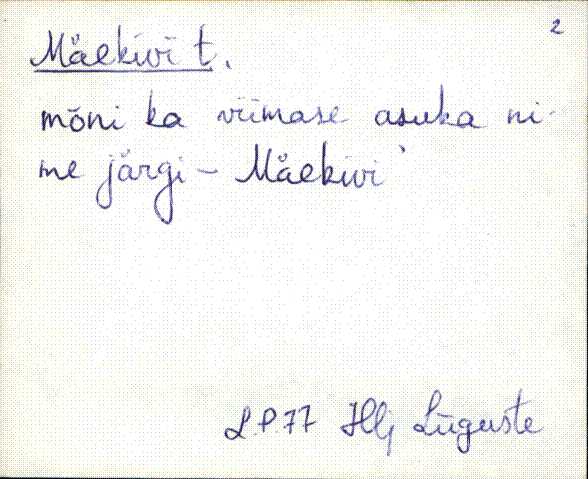 2
Mäekivi t.
mõni ka viimase asuka ni-
me järgi - Mäekivi'
L.P.77 Hlj Lüguste